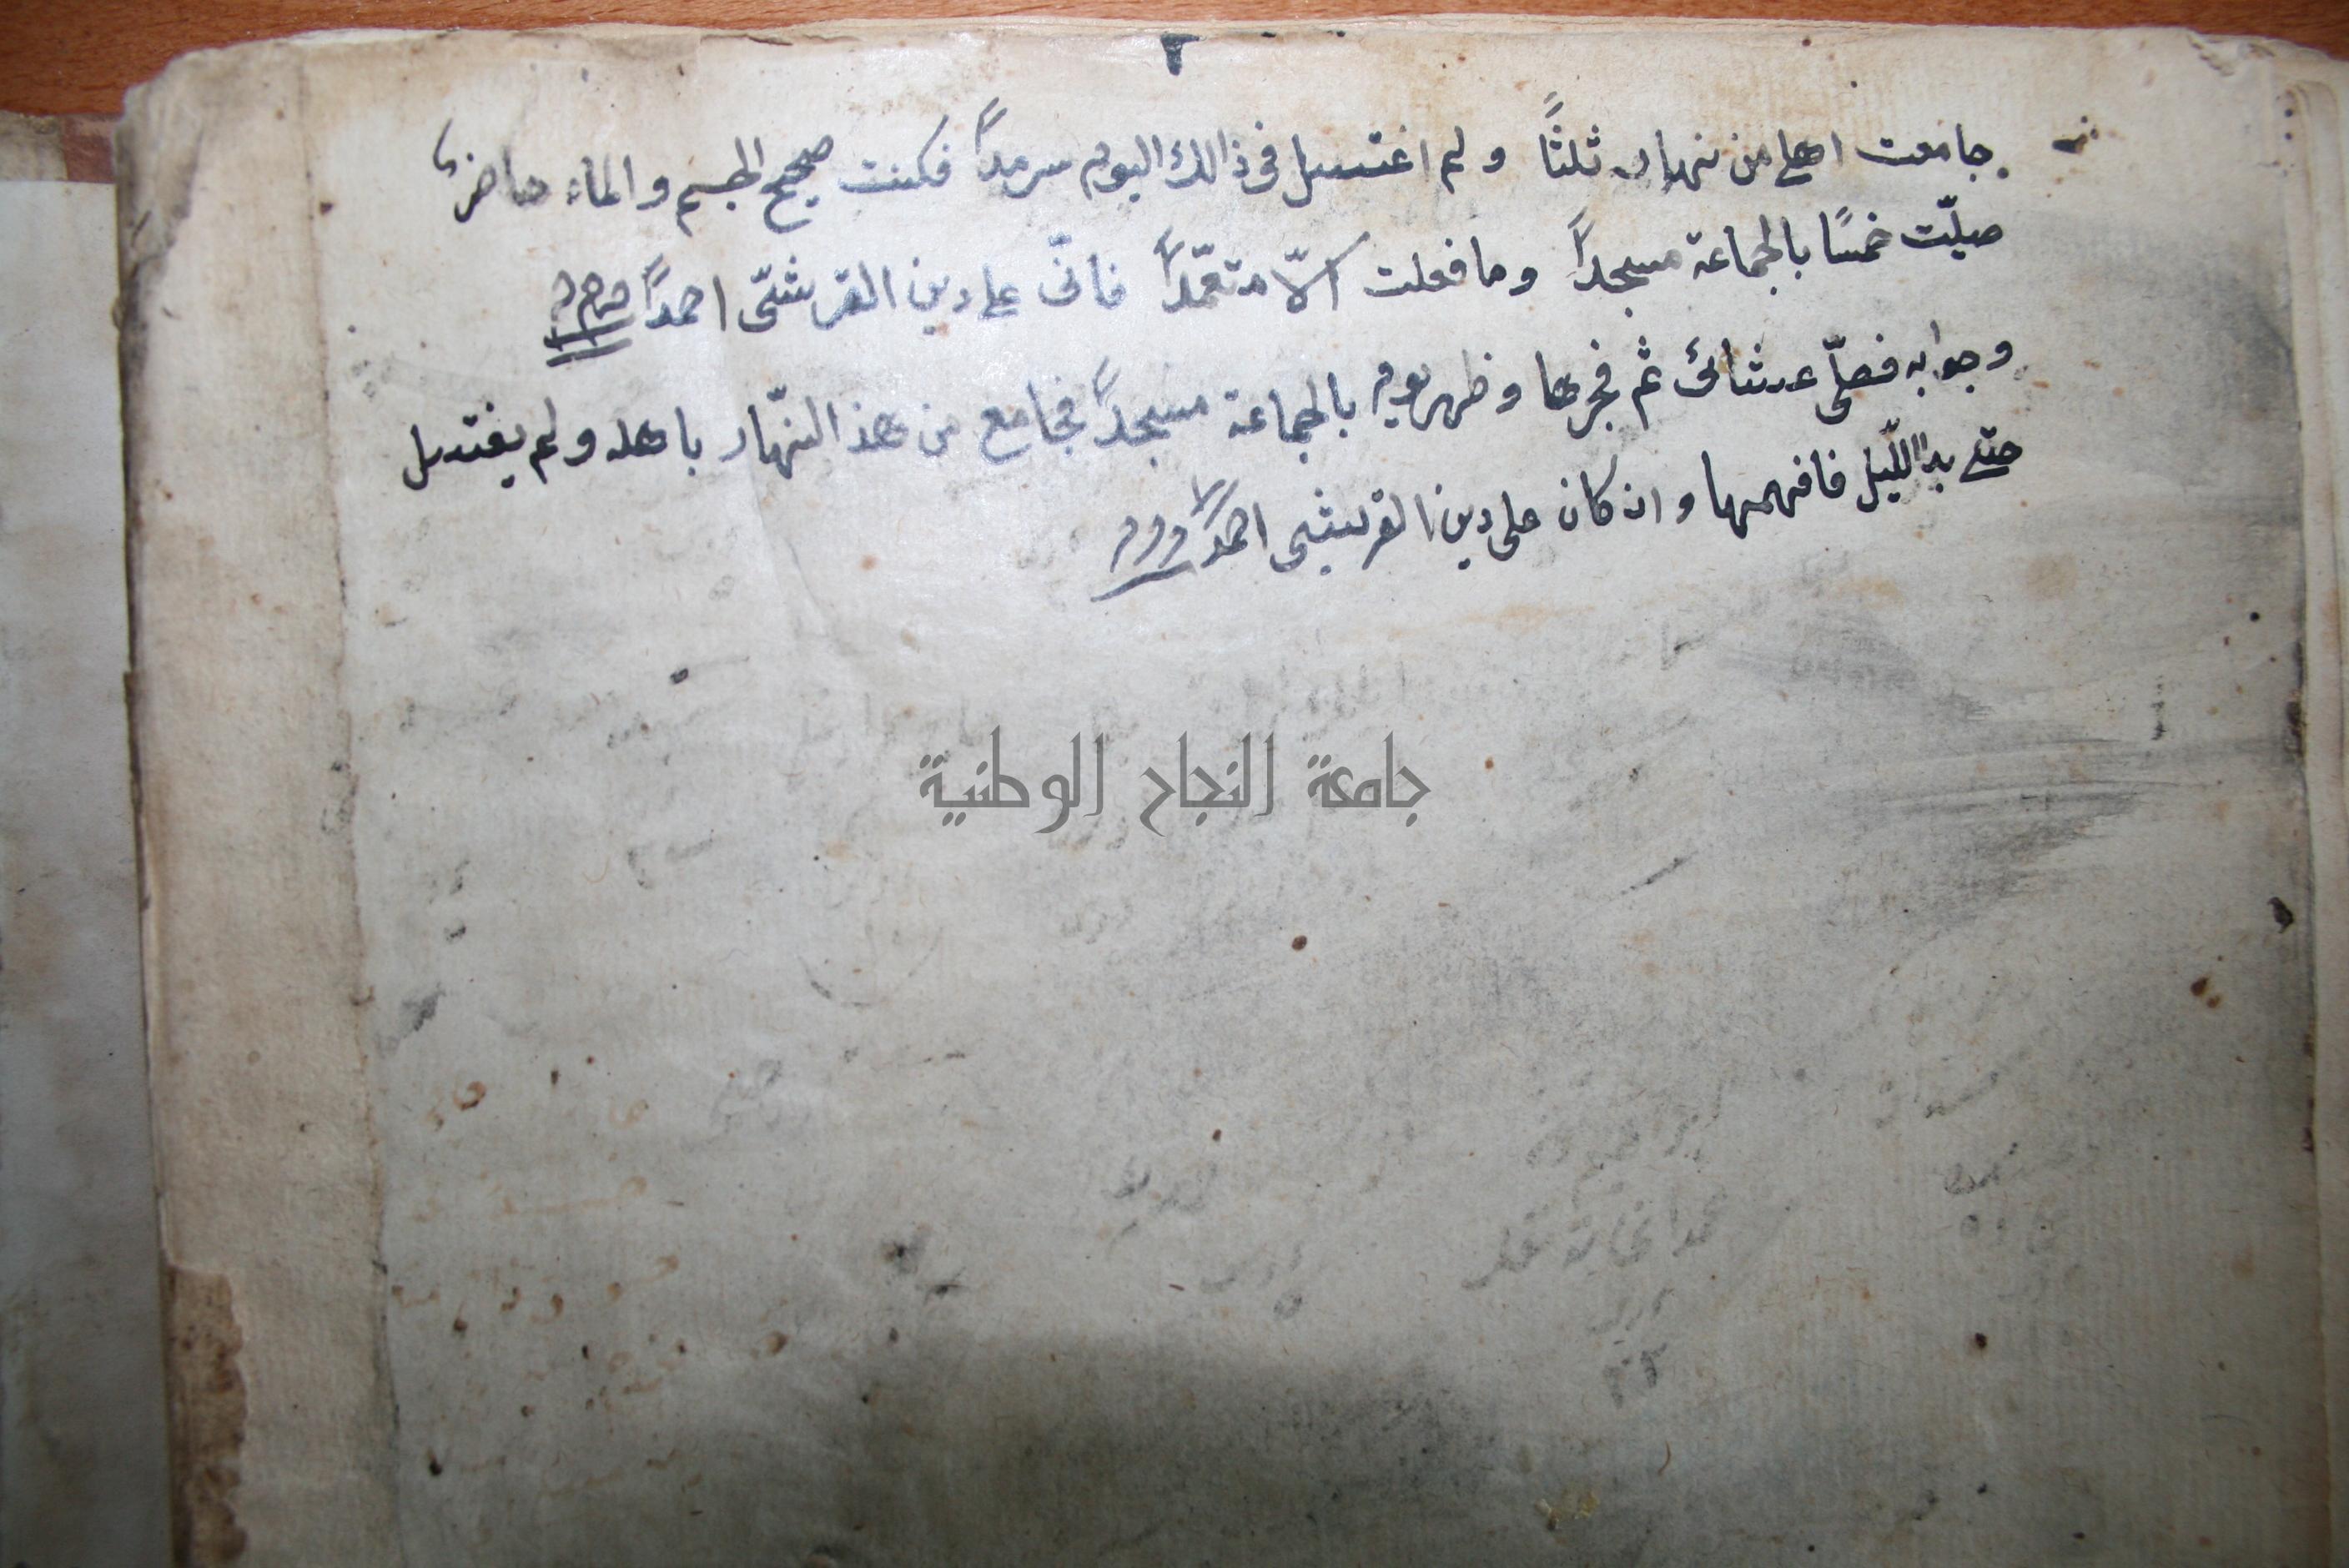 جامعت اهلى من نهار ثلثًا ولم اغتسل فى ذالك اليوم سرمداً فكنت صحيح الجسم والماء حاضرًا
صليّت خمسًا بالجماعة مسجداً وما فعلت الاّ متعمّداً فانّى على دين القرشىّ احمداً
وجوابه فصلّى عشائ ثم فجرها وظهر يوم بالجماعة مسجداً فجامع من هذا النّهار باهله ولم يغتسل
حتى بدا اللّيل فافهمها وان كان على دين القريشى احمداً
جامعة النجاح الوطنية